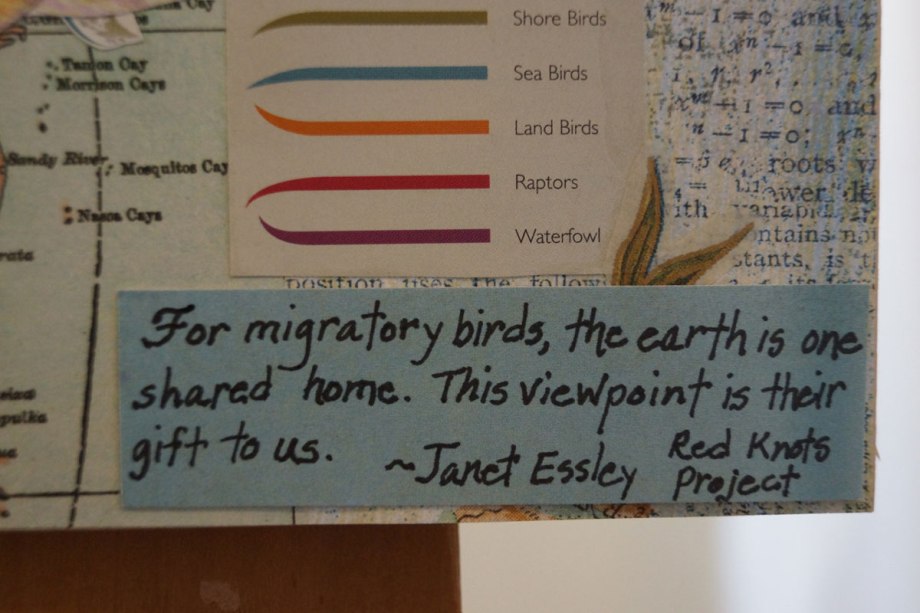 Tamon Cay
Morrison Cays
Sandy River
Mosquitos Cay
Nasca Cays
Shore Birds
Sea Birds
Land Birds
Raptors
Waterfowl
of
and
roots
ith variabl
ntains no
stants, is
position uses the follow
For migratory birds, the earth is one
shared home. This viewpoint is their
gift to us.
~Janet Essley
Red Knots
Project